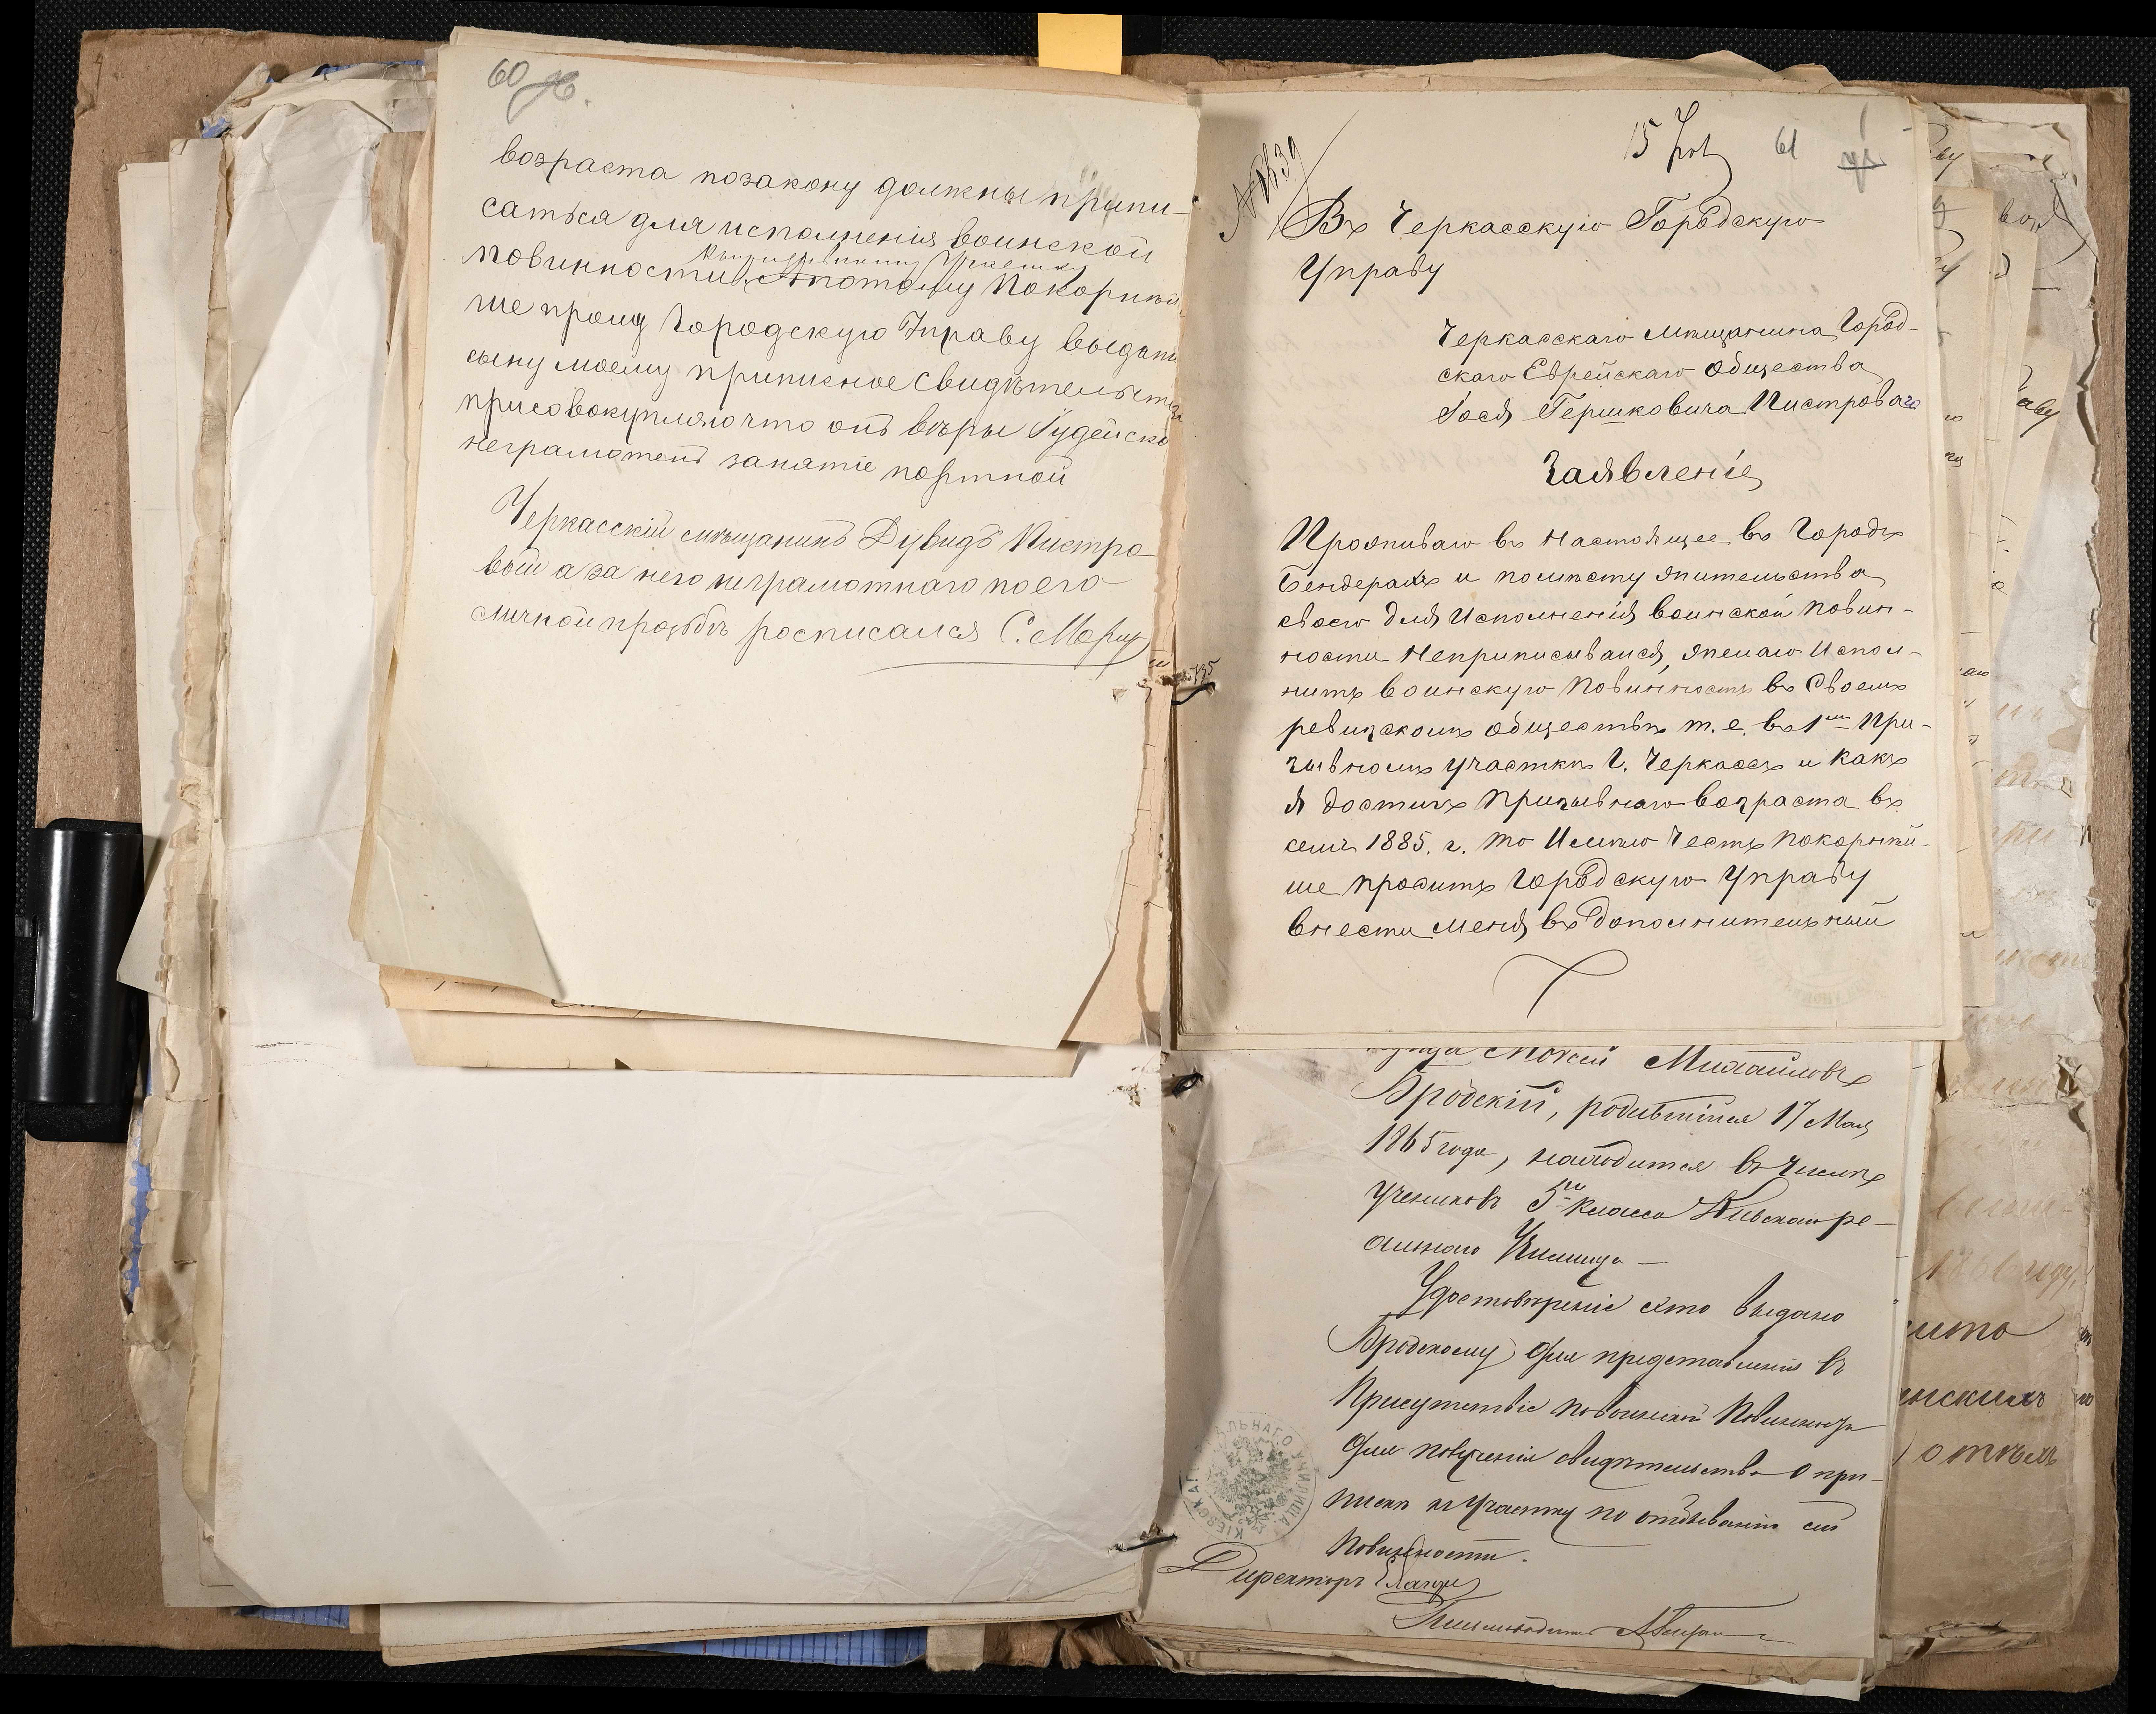 60
возраста позакону должны припи-
саться для исполненія воинской
повинности. Апотому Покорнѣй
ше прошу Городскую Управу выдать
сыну моему приписное Свидѣтельство
присовокупляю что онъ вѣры Іудейской
неграмотенъ занятіе портной
Черкасскій мѣщанинъ Дувидъ Пистро-
вый а за него неграмотнаго по его
личной прозьбѣ росписался С.
15 61
Въ Черкасскую Городскую
Управу
Черкасскаго Мѣщанина Город-
скаго Еврейскаго Общества
Іося Гершковича Пистроваго
Заявленіе
Проживаю въ Настоящее въ Городѣ
Бендерахъ и помѣсту жительства
своего для Исполненія воинской повин-
ности Неприписывался, желаю Испол-
нить воинскую Повинность въ Своемъ
ревизскомъ обществѣ т. е. въ 1мъ При-
зывномъ участкѣ Г. Черкассъ и Какъ
я достигъ Призывнаго возраста въ
семъ 1885. г. то Имѣю Честь Покорнѣй-
ше просить Городскую Управу
внести Меня въ Дополнительный
Мойсей Михайловъ
Бродскій, родившійся 17 Мая
1865 года, находится въ числѣ
учениковъ 5го класса Кіевскаго ре-
альнаго Училища —
Удостовѣреніе это выдано
Бродскому для представленія въ
Присутствіе по воинской Повинности
для полученія свидѣтельства о при-
пискѣ къ участку по отбыванію сей
Повинности.
КІЕВСКАГО РЕАЛЬНАГО УЧИЛИЩА
Директоръ
Письмоводитель